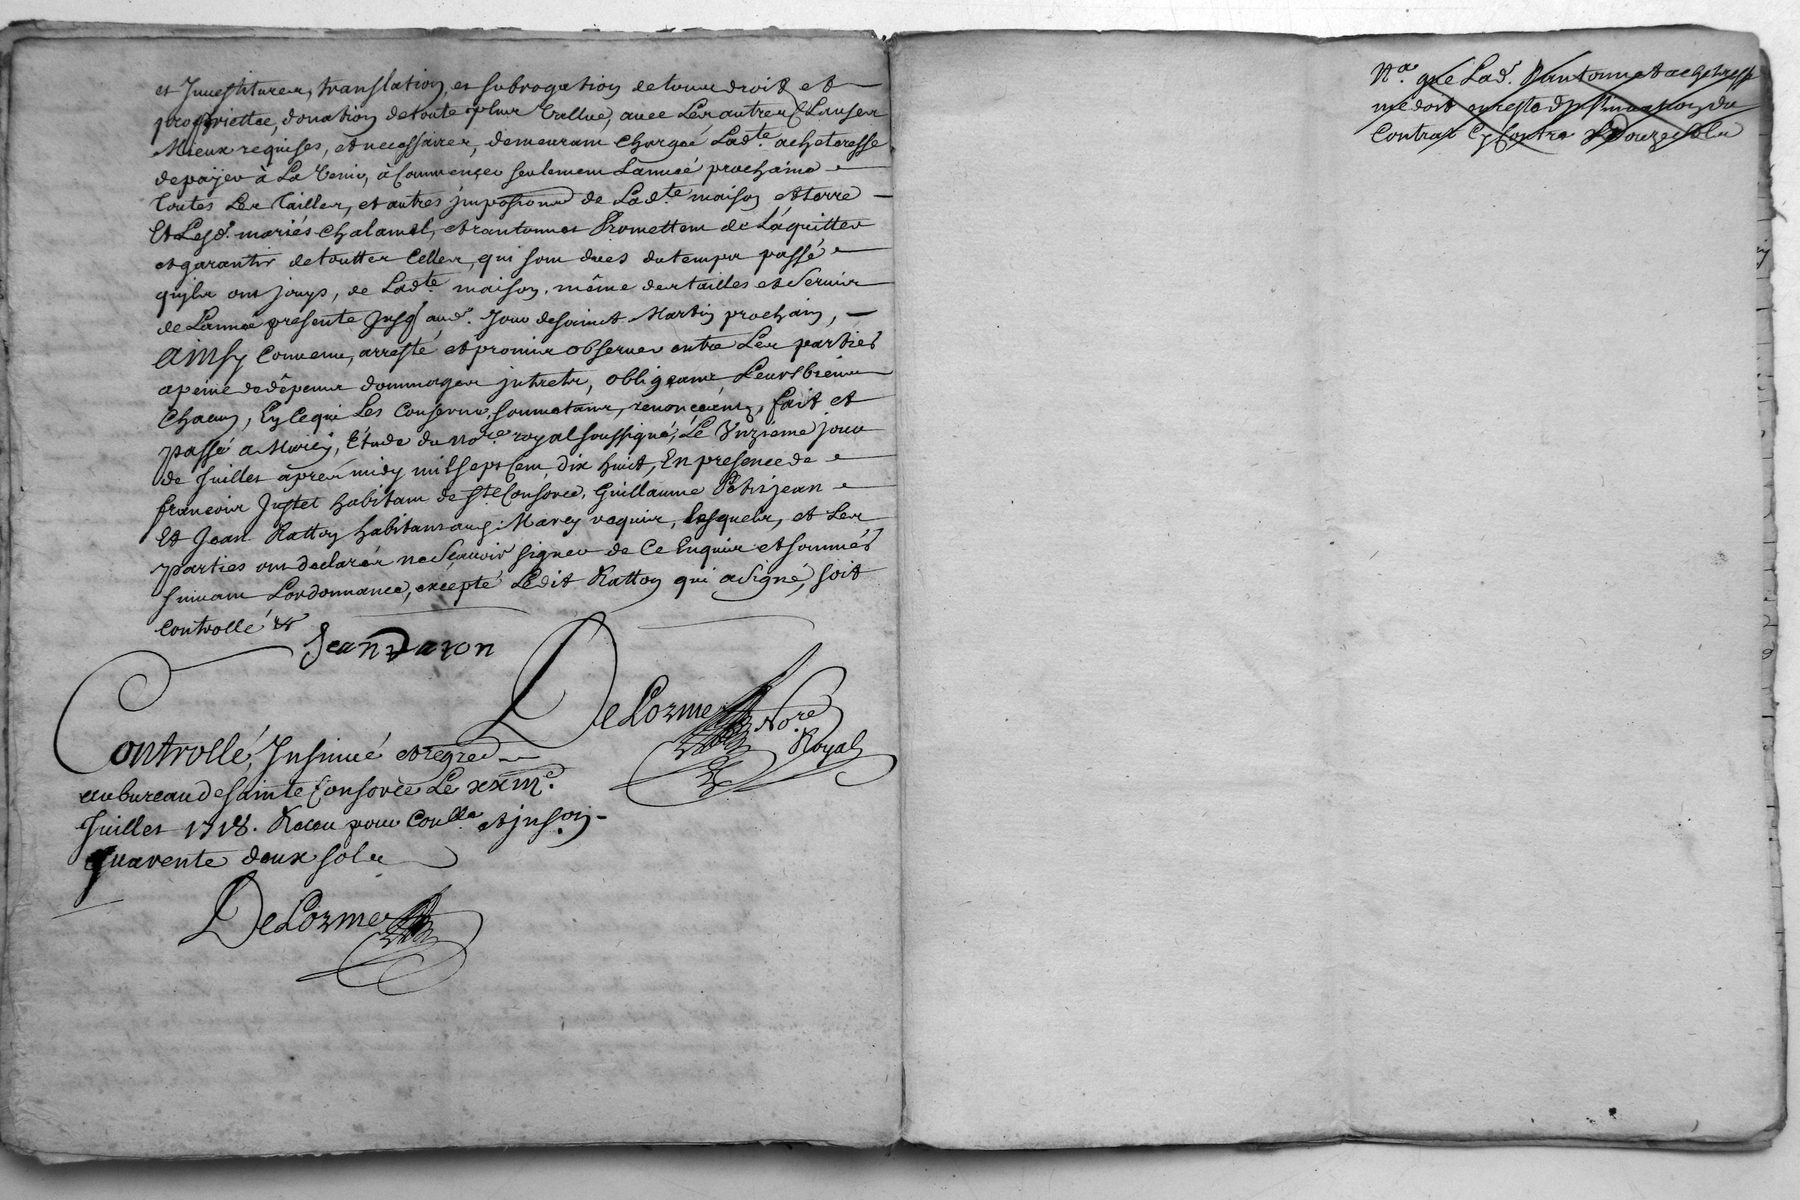 et Juuestitures, translation, et subrogation de tous droit et
propriettee, donation de toute plus Vallue, auec Les autres Clauses
Mieux requises, et necessaires, demeurant Chargée Lad.te achetresse
de païjer à La Venir, à Commencer seulement Lannée prochaine
toutes Les Tailles, et autres jmposions de Lad.te maison et terre
Et Lesd. mariés Chalamel, et rantonnet Promettent de Láquitter
et garantir de touttes Celles, qui sont dües du temps passé
quils ont jouys, de Lad.te maison. même des tailles et Servis
de Lannée presente Jusq. aud. Jour de sainct Martin prochain,
Ainsy Conuenu, arresté et promis observer entre Les parties
a peine de dêpens dommages jntrets, obligeants Leurs biens
Chacun, En Ce qui Les Conserne, soumetans, renonçeants, fait et
passé a Marcy, Étude du No.re royal soussigné, Le Vnzieme jour
de Juillet âpres midy mil sept Cent dix huict, En presence de
francois Justet habitant de S.te Consorce, Guillaume Petitjean
Et Jean Ratton habitans aud. Marcy requis, Lesquels, et Les
parties ont declarés ne Scauoir signer de Ce Enquis et sommés
suiuant Lordonnance, excepté Ledit Ratton qui a Signé, soit
Controllé &
Jean Raton
DeLorme No.re
Royal
Controllé, Jnsinué et regré
au bureau de sainte Consorce Le xxm.e
Juillet 1718. Receu pour Con.lle et jns.on
quarente deux sols
DeLorme
N.a que Lad. Rantonnet achetresse
me doit en reste de Jnsinuation du
Contrat Cy Contre Douze sols